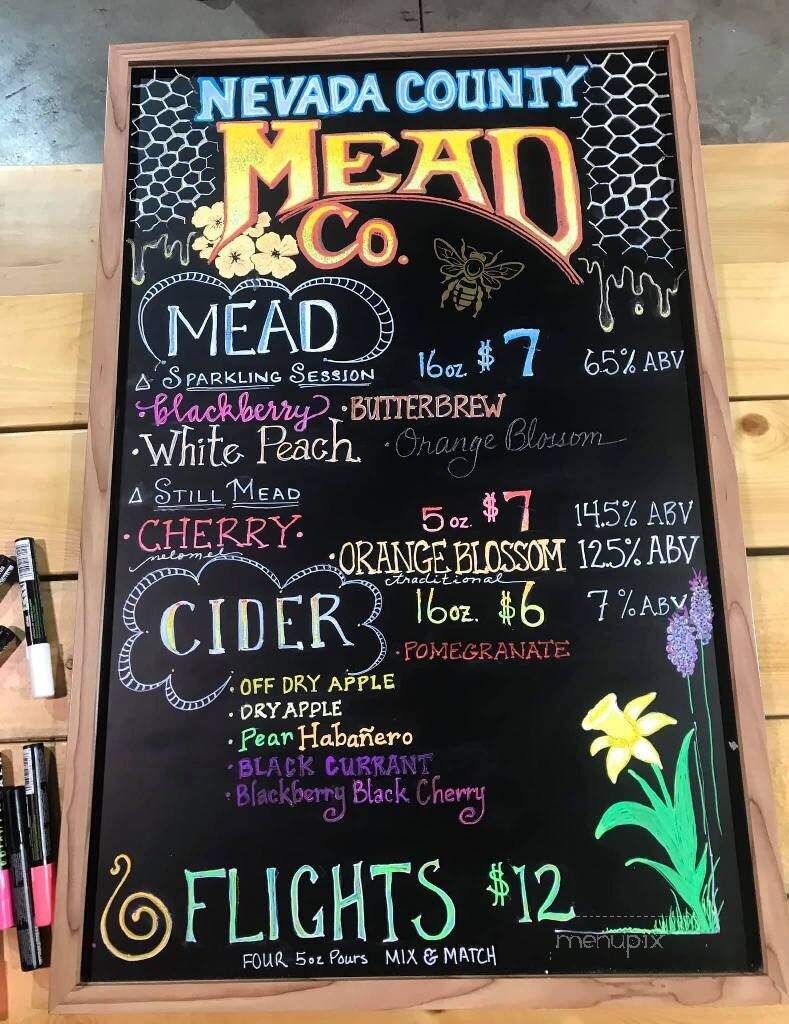 NEVADA COUNTY
MEAD
Co.
MEAD
△ SPARKLING SESSION 16oz. $7 6.5% ABV
·blackberry ·BUTTERBREW
·White Peach ·Orange Blossom
△ STILL MEAD
·CHERRY· 5oz. $7 14.5% ABV
·ORANGE BLOSSOM 12.5% ABV
traditional
CIDER 16oz. $6 7% ABV
·POMEGRANATE
·OFF DRY APPLE
·DRY APPLE
·Pear Habañero
·BLACK CURRANT
·Blackberry Black Cherry
FLIGHTS $12
FOUR 5oz Pours MIX & MATCH
menupix